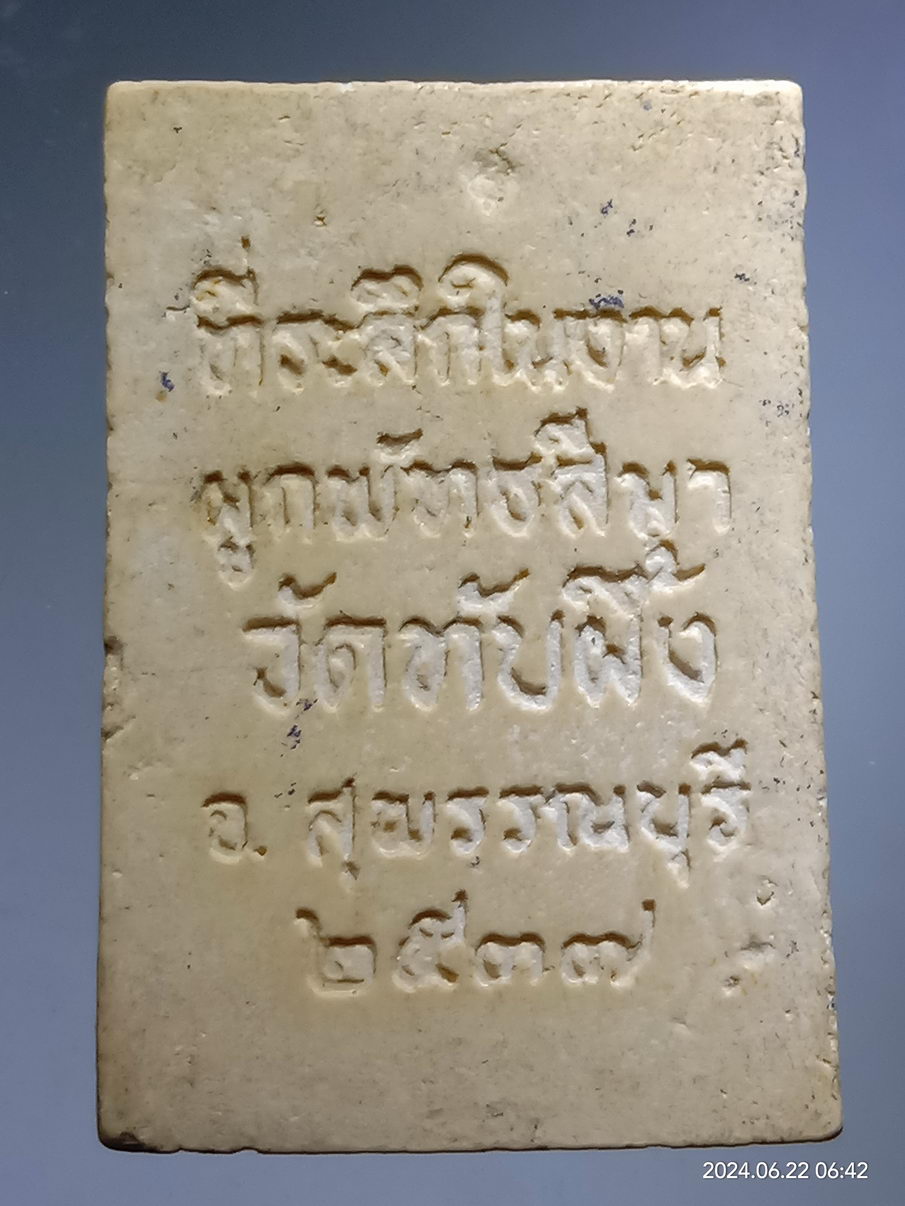 ที่ระลึกในงาน
ผูกพัทธสีมา
วัดทับผึ้ง
จ. สุพรรณบุรี
๒๕๓๗
2024.06.22 06:42